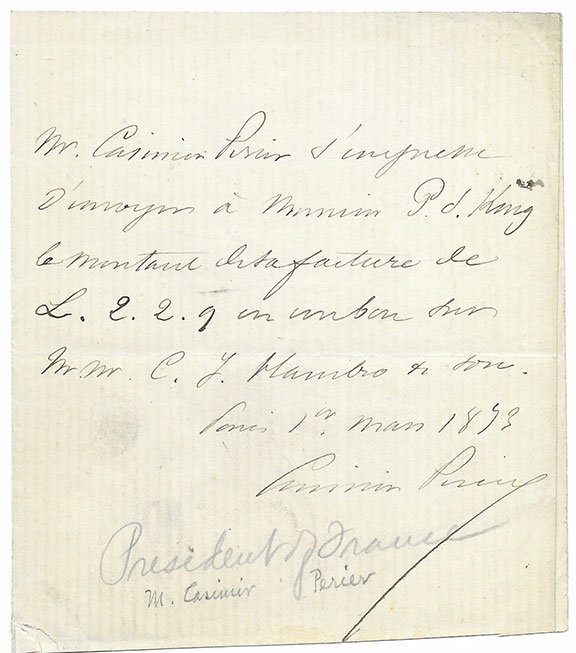 Mr. Casimir Perier s'empresse
d'envoyer à Monsieur P. S. King
le montant de sa facture de
L. 2. 2. 9 en un bon sur
MM. C. J. Hambro & son.
Paris 1er mars 1873
Casimir Perier
President of France
M. Casimir Perier